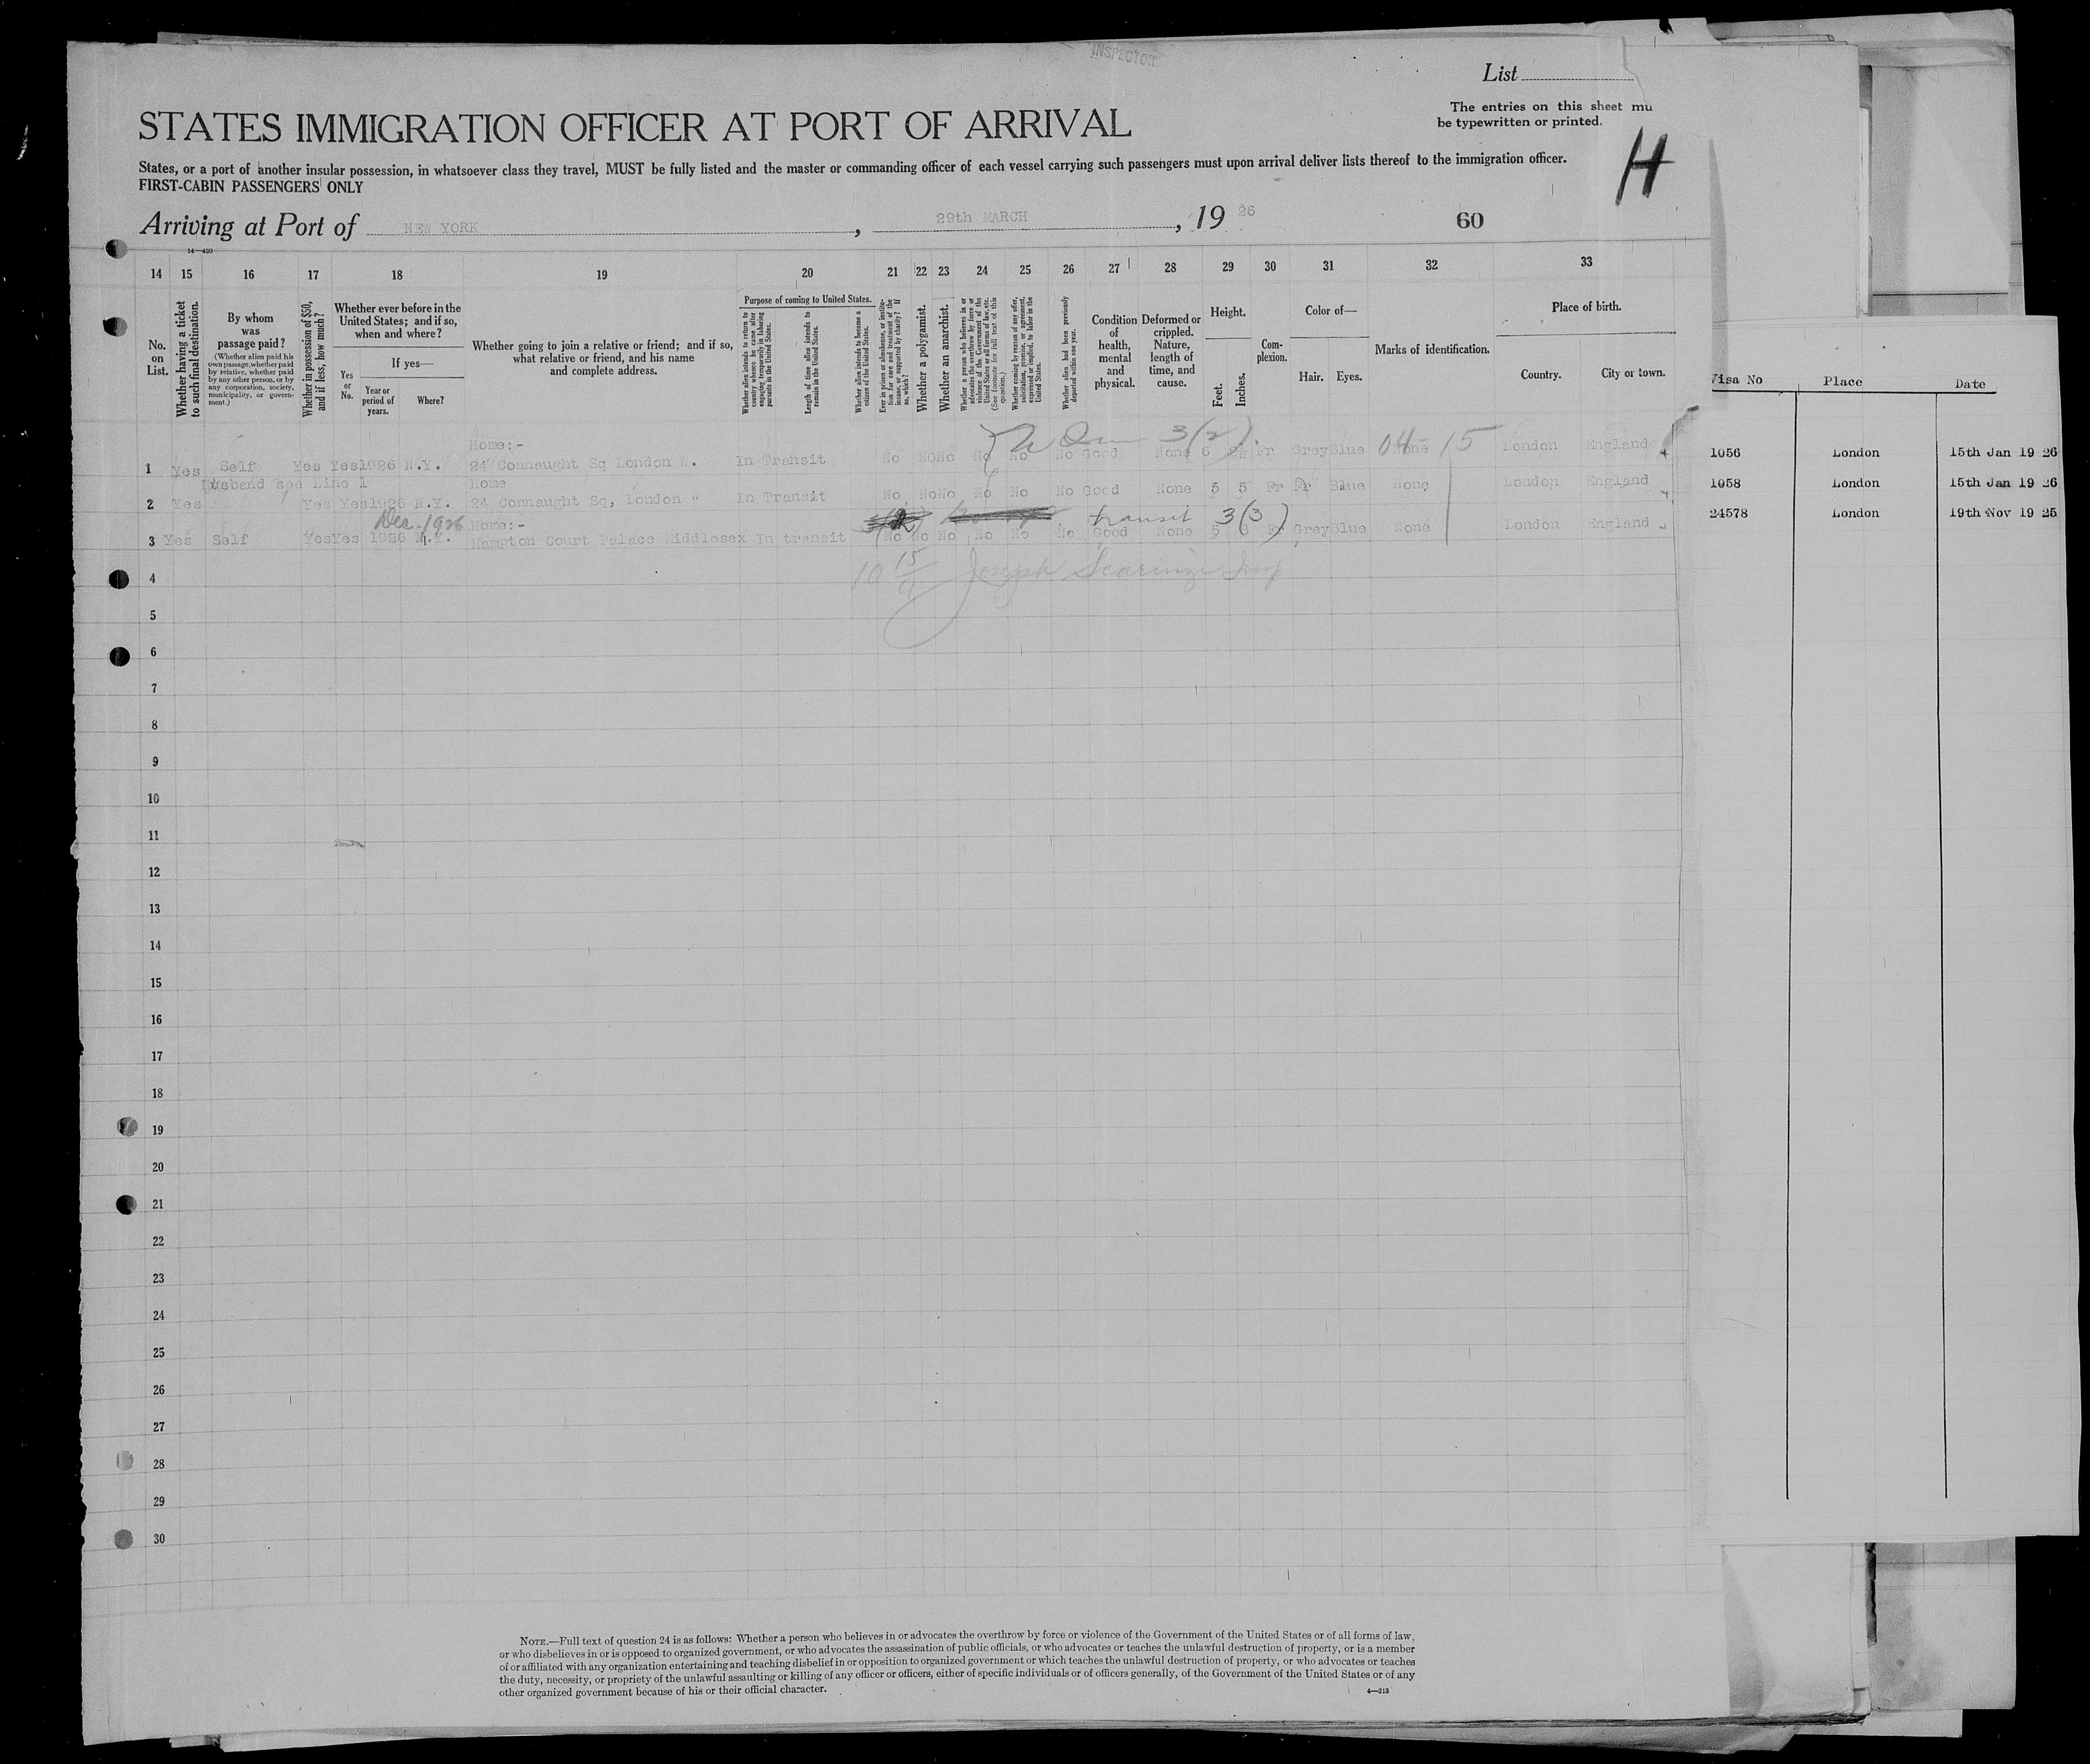 INSPECTOR
List
STATES IMMIGRATION OFFICER AT PORT OF ARRIVAL
The entries on this sheet mu
be typewritten or printed.
H
States, or a port of another insular possession, in whatsoever class they travel, MUST be fully listed and the master or commanding officer of each vessel carrying such passengers must upon arrival deliver lists thereof to the immigration officer.
FIRST-CABIN PASSENGERS ONLY
Arriving at Port of NEW YORK, 29th MARCH, 19 26 60
14 15 16 17 18 19 20 21 22 23 24 25 26 27 28 29 30 31 32 33
No. on List.
Whether having a ticket to such final destination.
By whom was passage paid?
(Whether alien paid his own passage, whether paid by relative, whether paid by any other person, or by any corporation, society, municipality, or government.)
Whether in possession of $50, and if less, how much?
Whether ever before in the United States; and if so, when and where?
If yes—
Yes or No.
Year or period of years.
Where?
Whether going to join a relative or friend; and if so, what relative or friend, and his name and complete address.
Purpose of coming to United States.
Whether alien intends to return to country whence he came after engaging temporarily in laboring pursuits in the United States.
Length of time alien intends to remain in the United States.
Whether alien intends to become a citizen of the United States.
Ever in prison or almshouse, or institution for care and treatment of the insane, or supported by charity? If so, which?
Whether a polygamist.
Whether an anarchist.
Whether a person who believes in or advocates the overthrow by force or violence of the Government of the United States or all forms of law, etc. (See footnote for full text of this question.)
Whether coming by reason of any offer, solicitation, promise, or agreement, expressed or implied, to labor in the United States.
Whether alien had been previously deported within one year.
Condition of health, mental and physical.
Deformed or crippled. Nature, length of time, and cause.
Height.
Feet.
Inches.
Complexion.
Color of—
Hair. Eyes.
Marks of identification.
Place of birth.
Country. City or town.
Visa No Place Date
Home:- 3(2) 04 15
1 Yes Self Yes Yes 1926 N.Y. 24 Connaught Sq London W. In Transit No No No No No No Good None 6 Fr Grey Blue None London England 1056 London 15th Jan 19 26
Husband see Line 1 Home
2 Yes Yes Yes 1926 N.Y. 24 Connaught Sq, London " In Transit No No No No No No Good None 5 5 Fr Fr Blue None London England 1058 London 15th Jan 19 26
Dec. 1926 Home:- transit 3(3)
3 Yes Self Yes Yes 1926 N.Y. Hampton Court Palace Middlesex In transit No No No No No No Good None 5 6 Fr Grey Blue None London England 24578 London 19th Nov 19 25
4
Joseph
5
6
7
8
9
10
11
12
13
14
15
16
17
18
19
20
21
22
23
24
25
26
27
28
29
30
NOTE.—Full text of question 24 is as follows: Whether a person who believes in or advocates the overthrow by force or violence of the Government of the United States or of all forms of law,
or who disbelieves in or is opposed to organized government, or who advocates the assassination of public officials, or who advocates or teaches the unlawful destruction of property, or is a member
of or affiliated with any organization entertaining and teaching disbelief in or opposition to organized government or which teaches the unlawful destruction of property, or who advocates or teaches
the duty, necessity, or propriety of the unlawful assaulting or killing of any officer or officers, either of specific individuals or of officers generally, of the Government of the United States or of any
other organized government because of his or their official character.
4—213